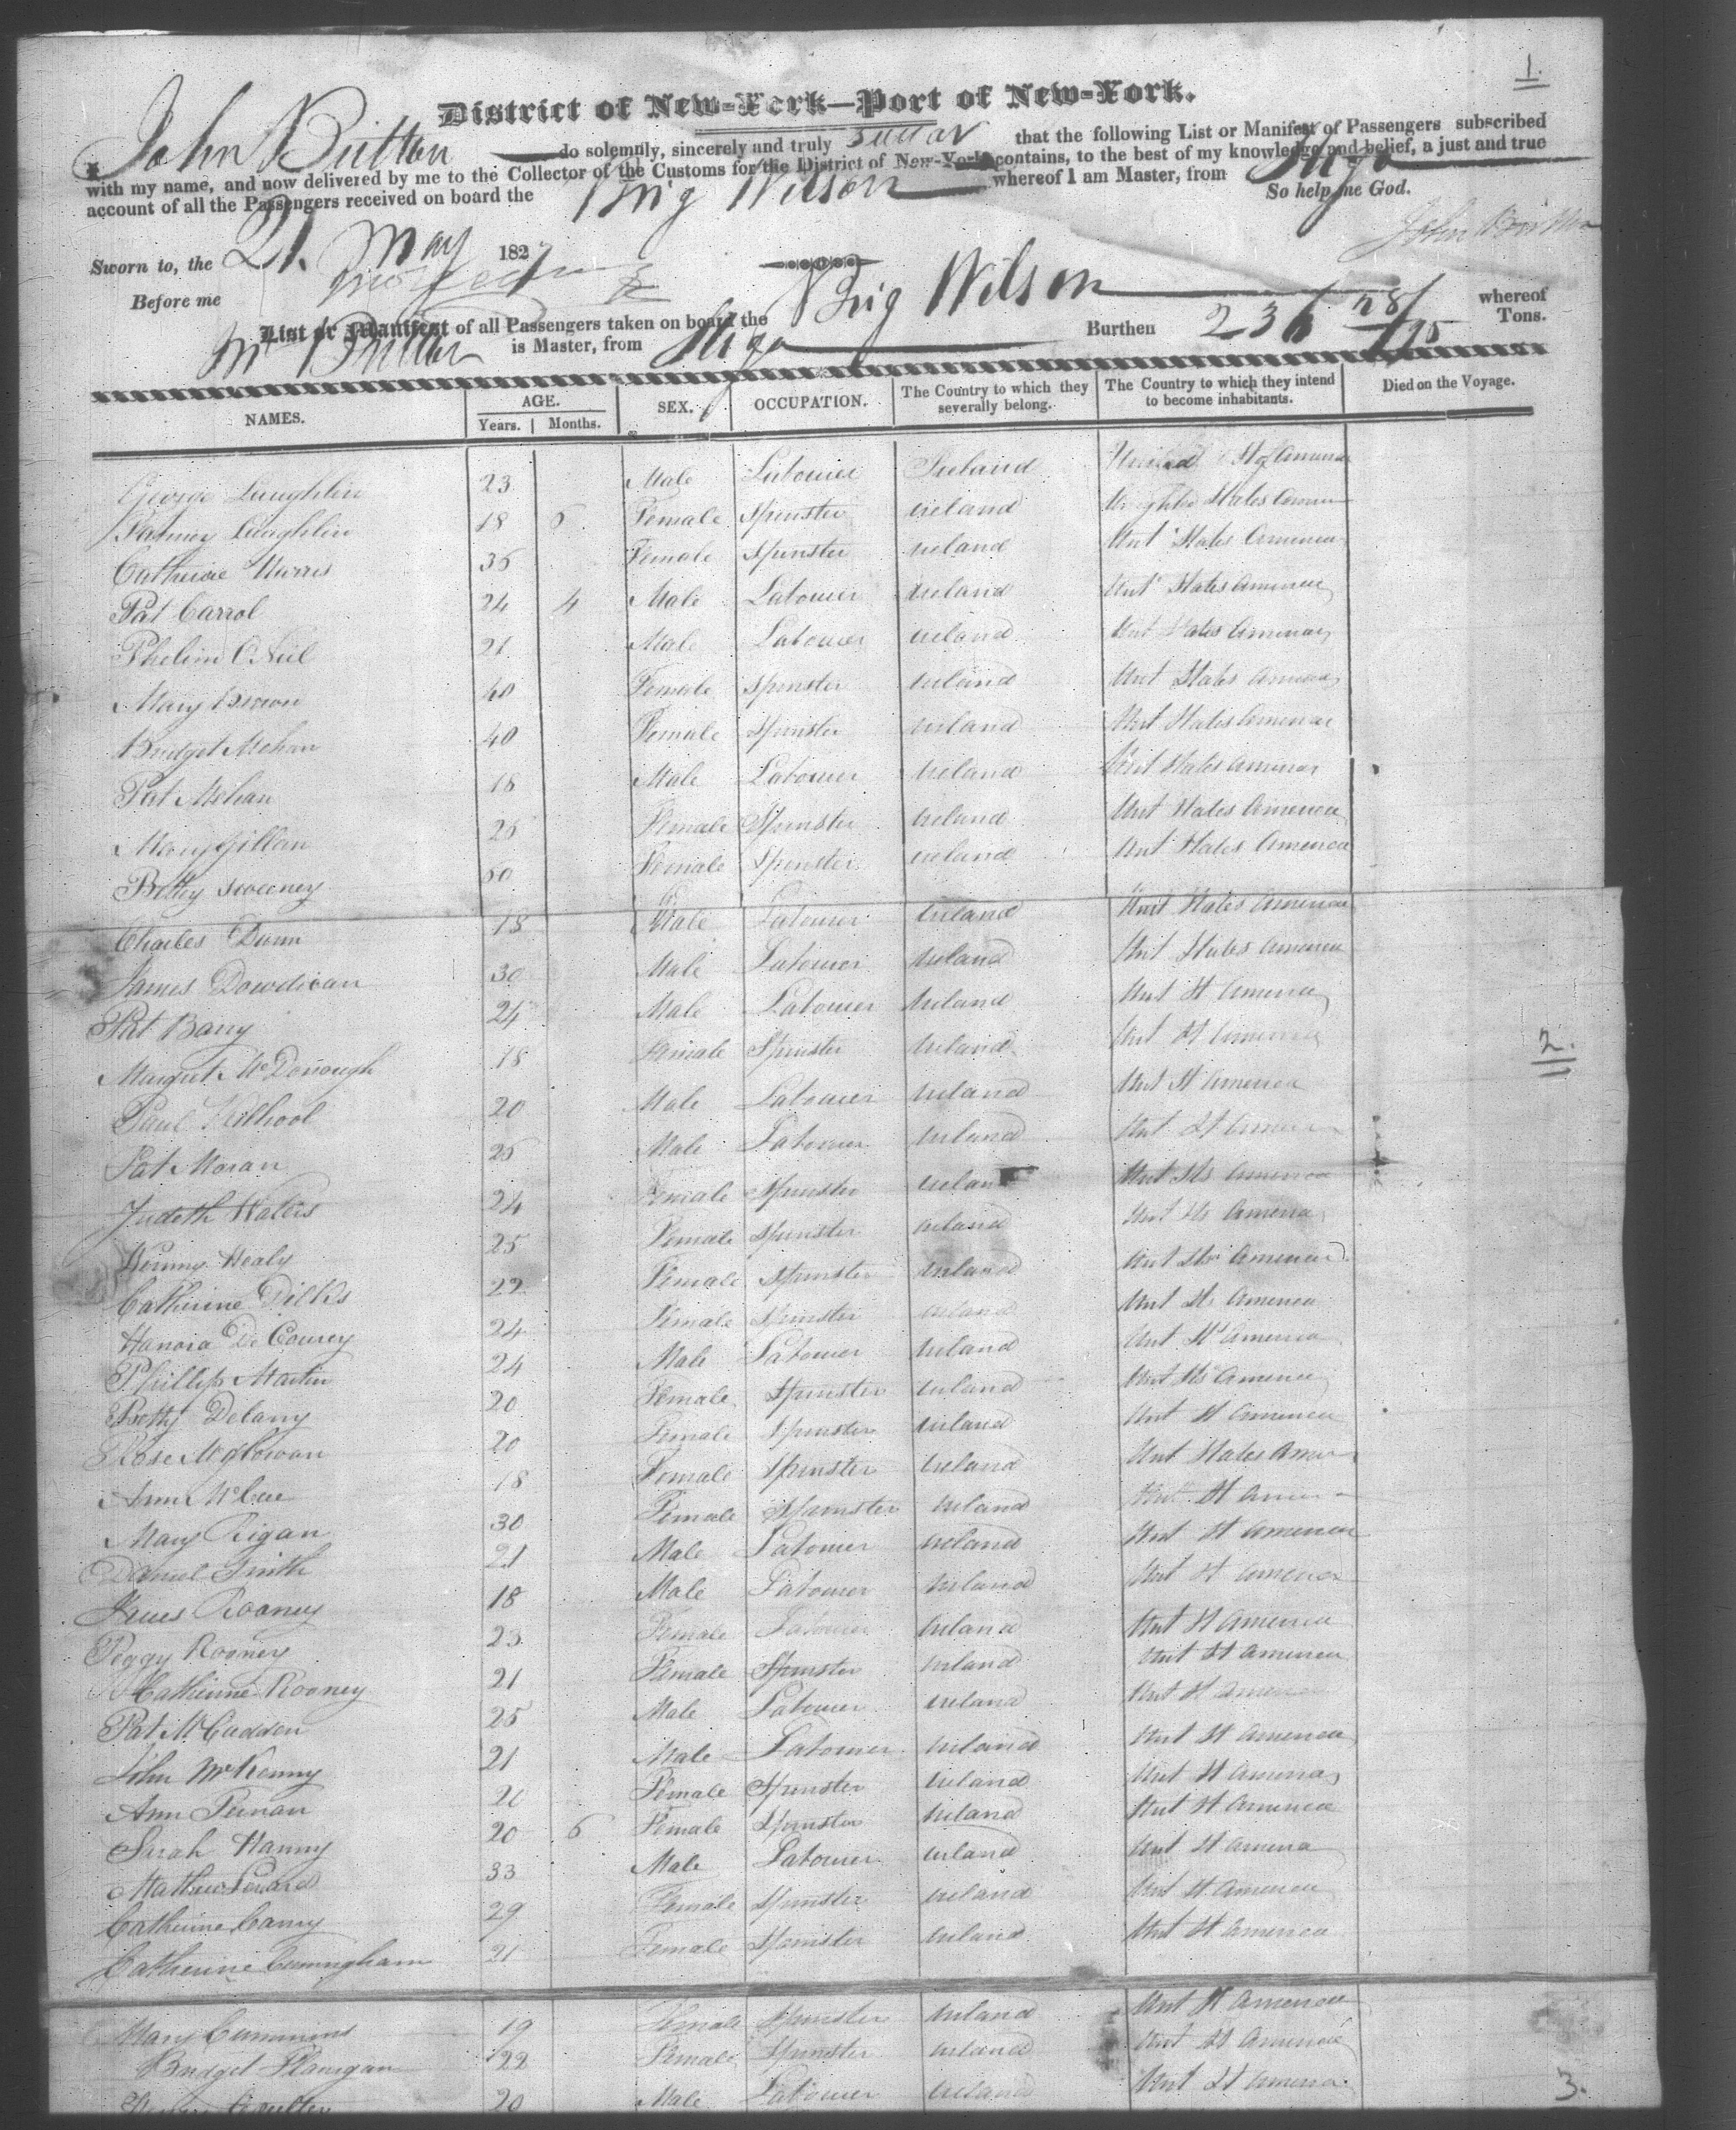 1.
District of New-York—Port of New-York.
John Britton do solemnly, sincerely and truly swear that the following List or Manifest of Passengers subscribed
with my name, and now delivered by me to the Collector of the Customs for the District of New-York contains, to the best of my knowledge and belief, a just and true
account of all the Passengers received on board the Brig Wilson whereof I am Master, from Sligo
So help me God.
Sworn to, the 21. May 1827
Before me
List or Manifest of all Passengers taken on board the Brig Wilson whereof
is Master, from Sligo Burthen 236 28/95 Tons.
NAMES. AGE. Years. Months. SEX. OCCUPATION. The Country to which they severally belong. The Country to which they intend to become inhabitants. Died on the Voyage.
George Laughlin 23 Male Labourer Ireland United St of America
Laughlin 18 6 Female Spinster Ireland States
Catherine 36 Female Spinster Ireland Unt States America
Pat Carrol 24 4 Male Labourer Ireland Unt States America
Phelim O Neil 21 Male Labourer Ireland Unt States America
Mary 40 Female Spinster Ireland Unt States America
Bridget Mehan 40 Female Spinster Ireland Unt States America
Pat Mehan 18 Male Labourer Ireland Unt States America
Mary Gillan 26 Female Spinster Ireland Unt States America
Betty Sweeney 60 Female Spinster Ireland Unt States America
Charles Dunn 18 Male Labourer Ireland Unt States America
James Dowdican 30 Male Labourer Ireland Unt States America
Pat Barry 24 Male Labourer Ireland Unt St America
Margret McDonough 18 Female Spinster Ireland Unt St America
2.
Paul Kilhool 20 Male Labourer Ireland Unt St America
Pat Moran 26 Male Labourer Ireland Unt St America
Judeth Waters 24 Female Spinster Ireland Unt Sts America
Healy 25 Female Spinster Ireland Unt Sts America
Catherine Dilks 22 Female Spinster Ireland Unt Sts America
Hanora De Courcy 24 Female Spinster Ireland Unt Sts America
Phillip Martin 24 Male Labourer Ireland Unt St America
Betty Delany 20 Female Spinster Ireland Unt Sts America
Rose McGowan 20 Female Spinster Ireland Unt St America
Ann McCue 18 Female Spinster Ireland Unt States Amer
Mary Rigan 30 Female Spinster Ireland Unt St Amer
Daniel 21 Male Labourer Ireland Unt St America
James Rooney 18 Male Labourer Ireland Unt St America
Peggy Rooney 23 Female Labourer Ireland Unt St America
Catherine Rooney 21 Female Spinster Ireland Unt St America
Pat McCudden 25 Male Labourer Ireland Unt St America
John McKenny 21 Male Labourer Ireland Unt St America
Ann 20 Female Spinster Ireland Unt St America
Sarah Hanny 20 6 Female Spinster Ireland Unt St America
Mathew 33 Male Labourer Ireland Unt St America
Catherine 29 Female Spinster Ireland Unt St America
Catherine Cunningham 21 Female Spinster Ireland Unt St America
Mary Cummins 19 Female Spinster Ireland Unt St America
Bridget Flanigan 22 Female Spinster Ireland Unt St America
20 Male Labourer Ireland Unt St America
3.